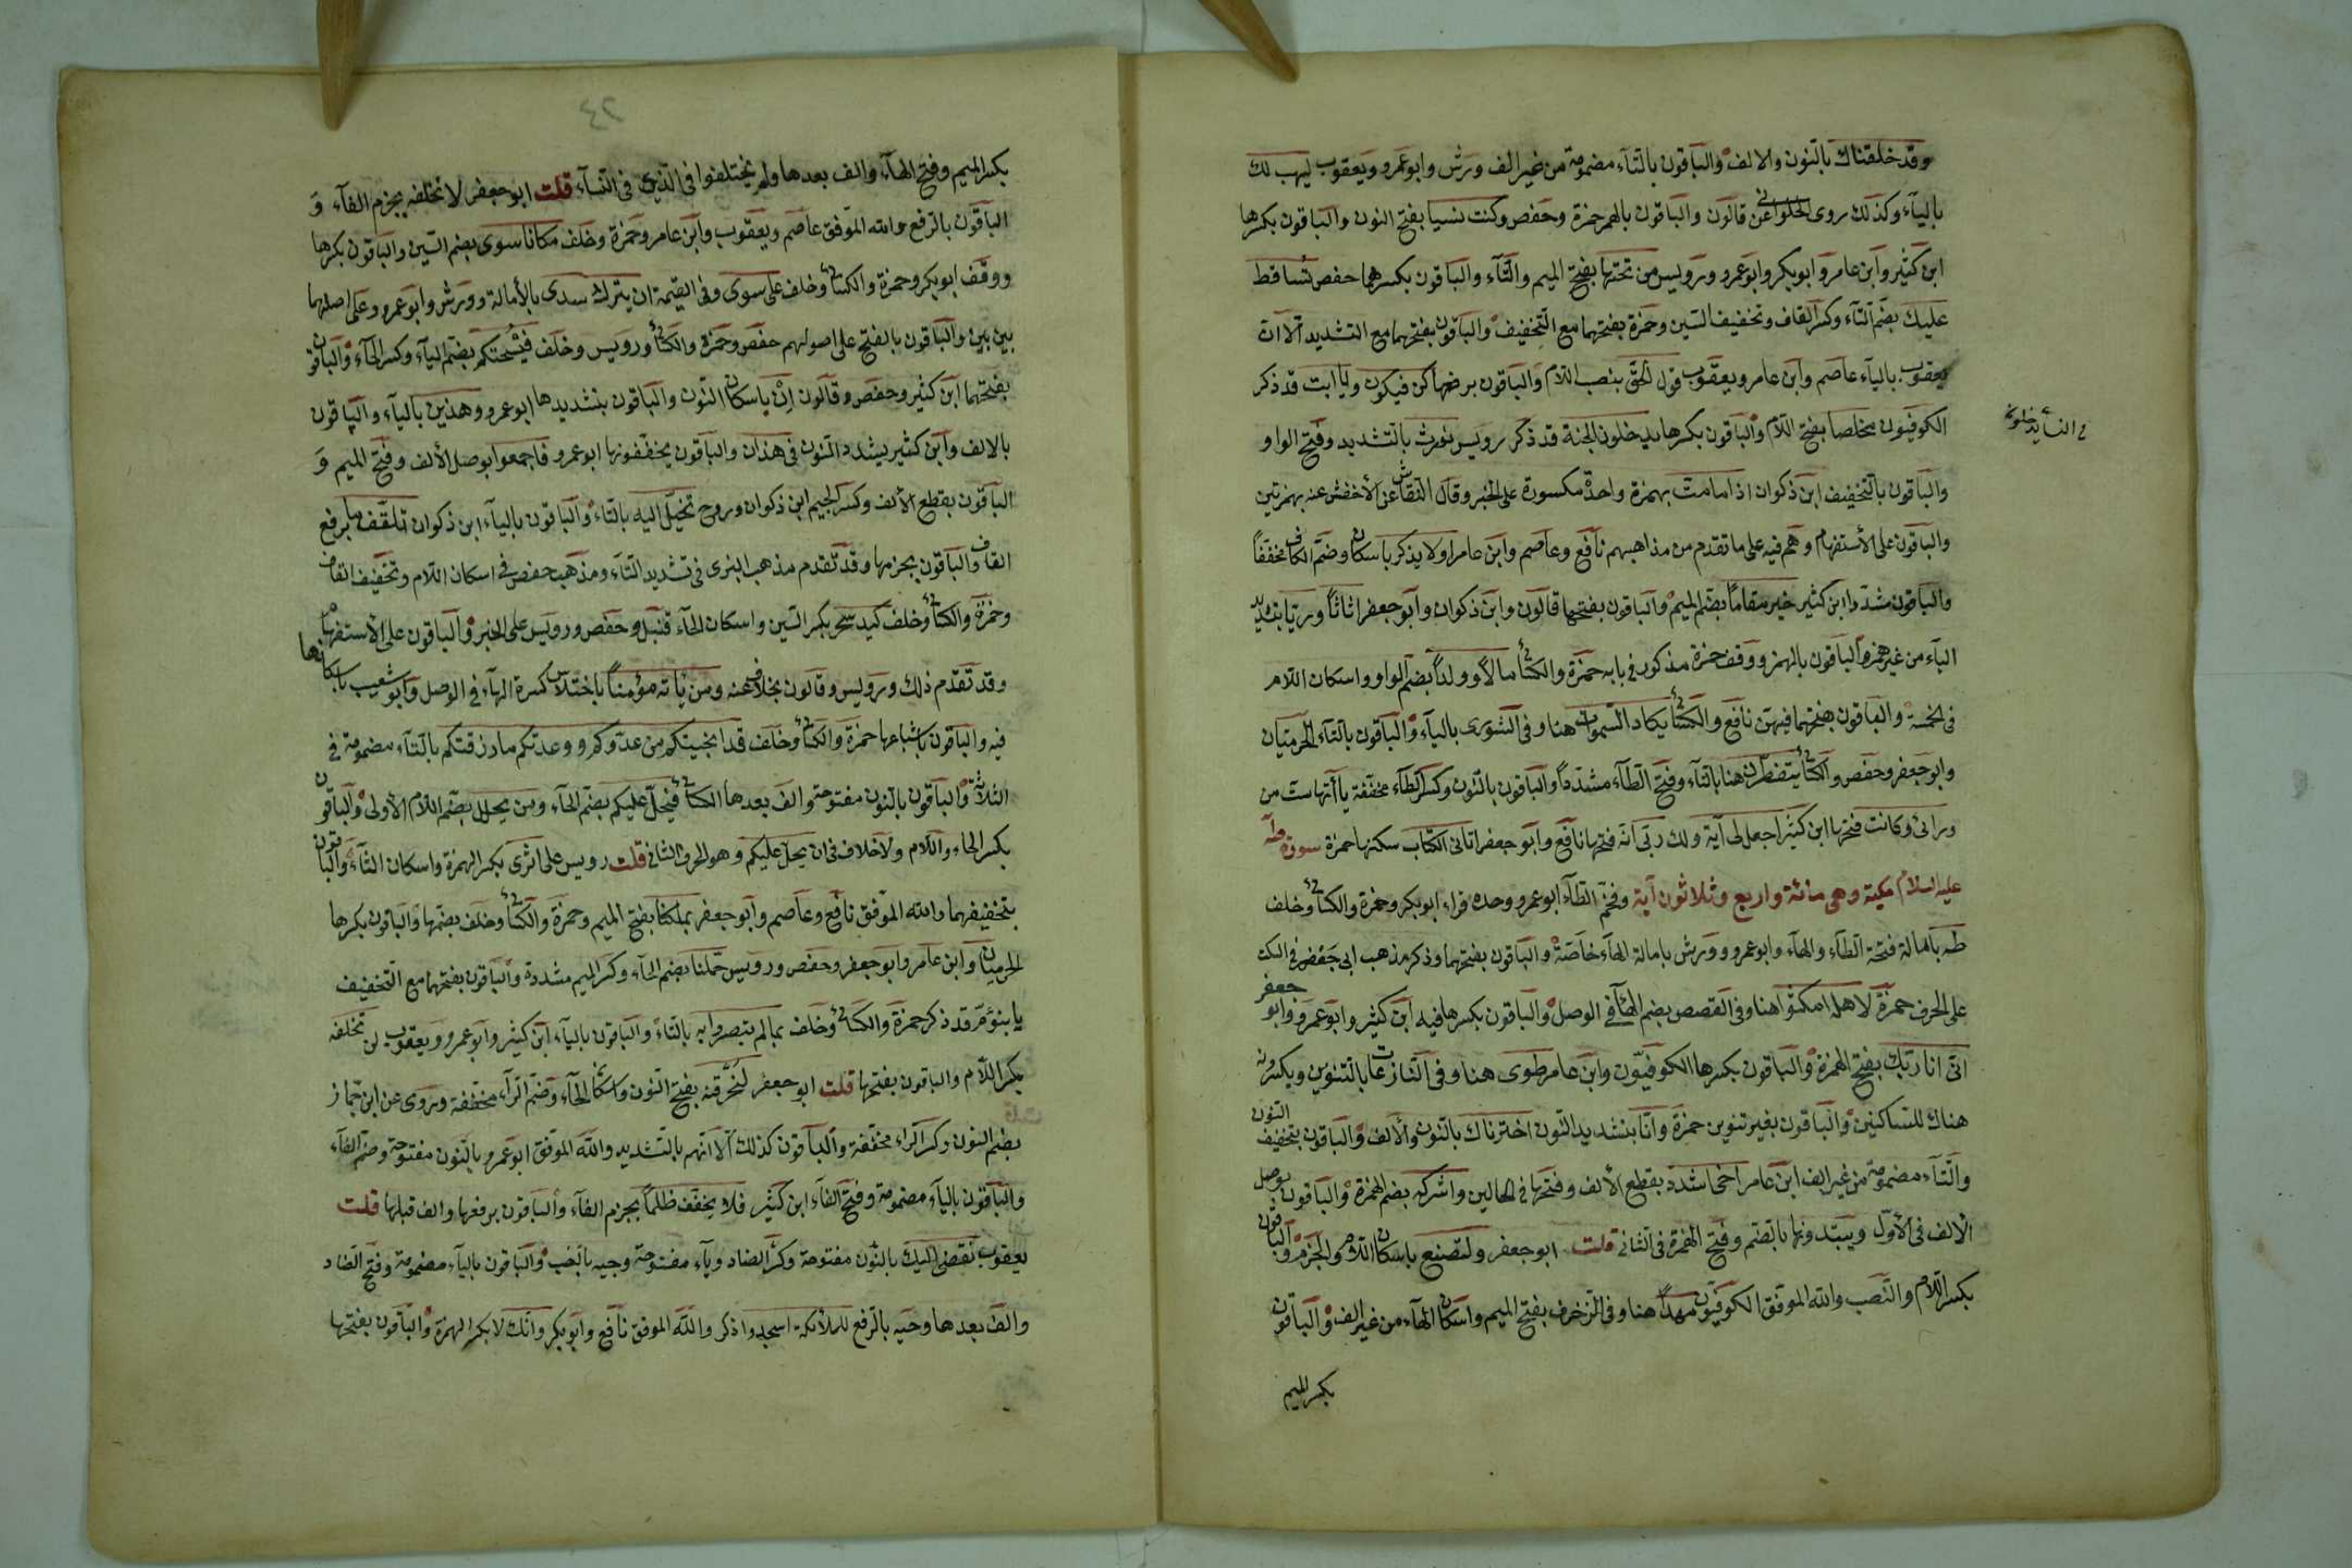 وقد خلقناك بالنون والالف والباقون بالتاء مضمومة من غير الف ورش وابو عمرو ويعقوب ليهب لك
بالياء وكذلك روى الحلواني عن قالون والباقون بالهمز حمزة وحفص وكنت نسيا بفتح النون والباقون بكسرها
ابن كثير وابن عامر وابو بكر وابو عمرو ورويس من تحتها بفتح الميم والتاء والباقون بكسرهما حفص تساقط
عليك بضم التاء وكسر القاف وتخفيف السين وحمزة بفتحهما مع التخفيف والباقون بفتحهما مع التشديد الا ان
يعقوب بالياء عاصم وابن عامر ويعقوب قول الحق بنصب اللام والباقون برفعها كن فيكون ويا ابت قد ذكر
الكوفيون مخلصا بفتح اللام والباقون بكسرها يدخلون الجنة قد ذكر رويس نورث بالتشديد وفتح الواو
والباقون بالتخفيف ابن ذكوان اذا ما مت بهمزة واحدة مكسورة على الخبر وقال النقاش عن الأخفش عنه بهمزتين
والباقون على الأستفهام وهم فيه على ما تقدم من مذاهبهم نافع وعاصم وابن عامر اولا يذكر باسكان وضم الكاف مخففاً
والباقون مشددا ابن كثير خير مقاماً بضم الميم والباقون بفتحها قالون وابن ذكوان وابو جعفر اثاثاً وريا بتشديد
الياء من غير همز والباقون بالهمز ووقف حمزة مذكور في بابه حمزة والكسائي مالاً وولداً بضم الواو واسكان اللام
في الخمسة والباقون بفتحهما فيهن نافع والكسائي يكاد السموات هنا وفى الشورى بالياء والباقون بالتاء الحرميان
وابو جعفر وحفص والكسائي يتفطرن هنا بالتاء وفتح الطاء مشدداً والباقون بالنون وكسر الطاء مخففة يا أتها ست من
ورائى وكانت فتحها ابن كثير اجعل لى آية ولك ربى انه فتحها نافع وابو جعفر اتانى الكتاب سكنها حمزة سورة طه
عليه السلام مكية وهى مائة واربع وثلاثون آية وفخم الطاء ابو عمرو وحده قراء ابو بكر وحمزة والكسائي وخلف
طه بامالة فتحة الطاء والهاء وابو عمرو وورش بامالة الهاء خاصة والباقون بفتحهما وذكر مذهب ابى جعفر فى السكت
على الحرف حمزة لاهله امكثوا هنا وفى القصص بضم الهاء فى الوصل والباقون بكسرها فيه ابن كثير وابو عمرو وابو جعفر
انى انا ربك بفتح الهمزة والباقون بكسرها الكوفيون وابن عامر طوى هنا وفى النازعات بالتنوين ويكسرونه
هناك للساكنين والباقون بغير تنوين حمزة وانا بتشديد النون اخترناك بالنون والالف والباقون بتخفيف النون
والتاء مضمومة من غير الف ابن عامر اخى اشدد بقطع الألف وفتحها فى الحالين واشركه بضم الهمزة والباقون بوصل
الالف فى الأول ويبتدونها بالضم وفتح الهمزة فى الثانى قلت ابو جعفر ولتصنع باسكان اللام والجزم والباقون
بكسر اللام والنصب والله الموفق الكوفيون مهداً هنا وفى الزخرف بفتح الميم واسكان الهاء من غير الف والباقون
بكسر الميم
٢٤
بكسر الميم وفتح الهاء والف بعدها ولم يختلفوا فى الذى فى النبأ قلت ابو جعفر لا نخلفه بجزم الفاء و
الباقون بالرفع والله الموفق عاصم ويعقوب وابن عامر وحمزة وخلف مكانا سوى بضم السين والباقون بكسرها
ووقف ابو بكر وحمزة والكسائي وخلف على سوى وفى القيمة ان يترك سدى بالأمالة وورش وابو عمرو على اصلهما
بين بين والباقون بالفتح على اصولهم حفص وحمزة والكسائي ورويس وخلف فيسحتكم بضم الياء وكسر الحاء والباقون
بفتحهما ابن كثير وحفص وقالون ان باسكان النون والباقون بتشديدها ابو عمرو وهذين بالياء والباقون
بالالف وابن كثير يشدد النون فى هذان والباقون يخففونها ابو عمرو فاجمعوا بوصل الألف وفتح الميم و
الباقون بقطع الألف وكسر الجيم ابن ذكوان وروح تخيل اليه بالتاء والباقون بالياء ابن ذكوان تلقف ما برفع
القاف والباقون بجزمها وقد تقدم مذهب البزى فى تشديد التاء ومذهب حفص فى اسكان اللام وتخفيف القاف
وحمزة والكسائي وخلف كيد سحر بكسر السين واسكان الحاء قنبل وحفص ورويس على الخبر والباقون على الأستفهام
وقد تقدم ذلك ورويس وقالون بخلاف عنه ومن يأته مؤمناً باختلاس كسرة الهاء فى الوصل وابو شعيب باسكانها
فيه والباقون باشباعها حمزة والكسائي وخلف قد انجيتكم من عدوكم ووعدتكم ما رزقتكم بالتاء مضمومة فى
الثلاثة والباقون بالنون مفتوحة والف بعدها الكسائي فيحل عليكم بضم الحاء ومن يحلل بضم اللام الأولى والباقون
بكسر الحاء واللام ولا خلاف فى ان يحل عليكم وهو الحرف الثانى قلت رويس على اثرى بكسر الهمزة واسكان الثاء والباقون
بتخفيفهما والله الموفق نافع وعاصم وابو جعفر بملكنا بفتح الميم وحمزة والكسائي وخلف بضمها والباقون بكسرها
الحرميان وابن عامر وابو جعفر وحفص ورويس حملنا بضم الحاء وكسر الميم مشددة والباقون بفتحهما مع التخفيف
يا بنؤم قد ذكر حمزة والكسائي وخلف بما لم تبصروا به بالتاء والباقون بالياء ابن كثير وابو عمرو ويعقوب لن تخلفه
بكسر اللام والباقون بفتحها قلت ابو جعفر لنحرقنه بفتح النون واسكان الحاء وضم الراء مخففة وروى عن ابن جماز
بضم النون وكسر الراء مخففة والباقون كذلك الا انهم بالتشديد والله الموفق ابو عمرو بالنون مفتوحة وضم الفاء
والباقون بالياء مضمومة وفتح الفاء ابن كثير فلا يخف ظلماً بجزم الفاء والباقون برفعها والف قبلها قلت
يعقوب نقضى اليك بالنون مفتوحة وكسر الضاد وياء مفتوحة وحيه بالنصب والباقون بالياء مضمومة وفتح الضاد
والف بعدها وحيه بالرفع للملائكة اسجدوا ذكر والله الموفق نافع وابو بكر وانك لا بكسر الهمزة والباقون بفتحها